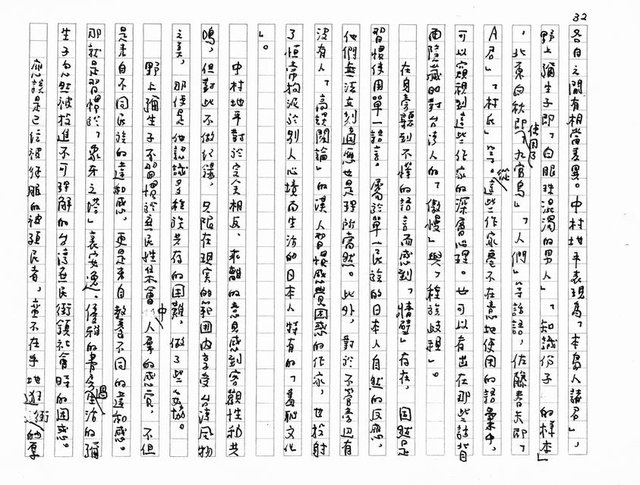 32
各自之間有相當差異。中村地平表現為「本島人諸君」,
野上彌生子即「白眼珠混濁的男人」「知識份子的樣本」
,北原白秋即使用了「九官鳥」「人們」等話語,佐藤春夫即「
A君」「村氏」等。從這些作家毫不在意地使用的語彙中,
可以窺視到這些作家的深層心理。也可以看出在那些話背
面隱藏的對台灣人的「傲慢」與「種族歧視」。
在身旁聽到不懂的語言而感到「情壁」存在,固然是
習慣使用單一語言、屬於單一民族的日本人自然的反應,
他們無法立刻適應也是理所當然。此外,對於不管旁邊有
沒有人「高談闊論」的漢人習慣感覺困惑的作家,也投射
了恒常拘泥於別人心境而生活的日本人特有的「羞恥文化
」。
中村地平對於完全相反、乖離的意見感到客觀性和共
鳴,但對此不做紀錄,只限在現實的範圍內享受台灣風物
之美,那便是他認識多種族共存的困難,做了些妥協。
野上彌生子不習慣於無民性社會中人羣的感覺,不但
是來自不同民族的違和感,更是來自教養不同的違和感。
那就是習慣於「象牙之塔」裏安逸、優雅的書齋生活過的彌
生子忽然被投進不可理解的台灣庶民街鎮社會時的困惑。
應該是已經被征服的被殖民者,蠻不在乎地逛街的厚